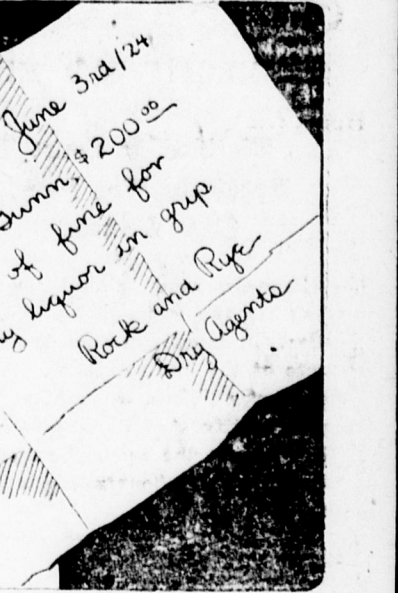 June 3rd/24
Gunn, $200.00
of fine for
liquor in grip
Rock and Rye
Dry Agents